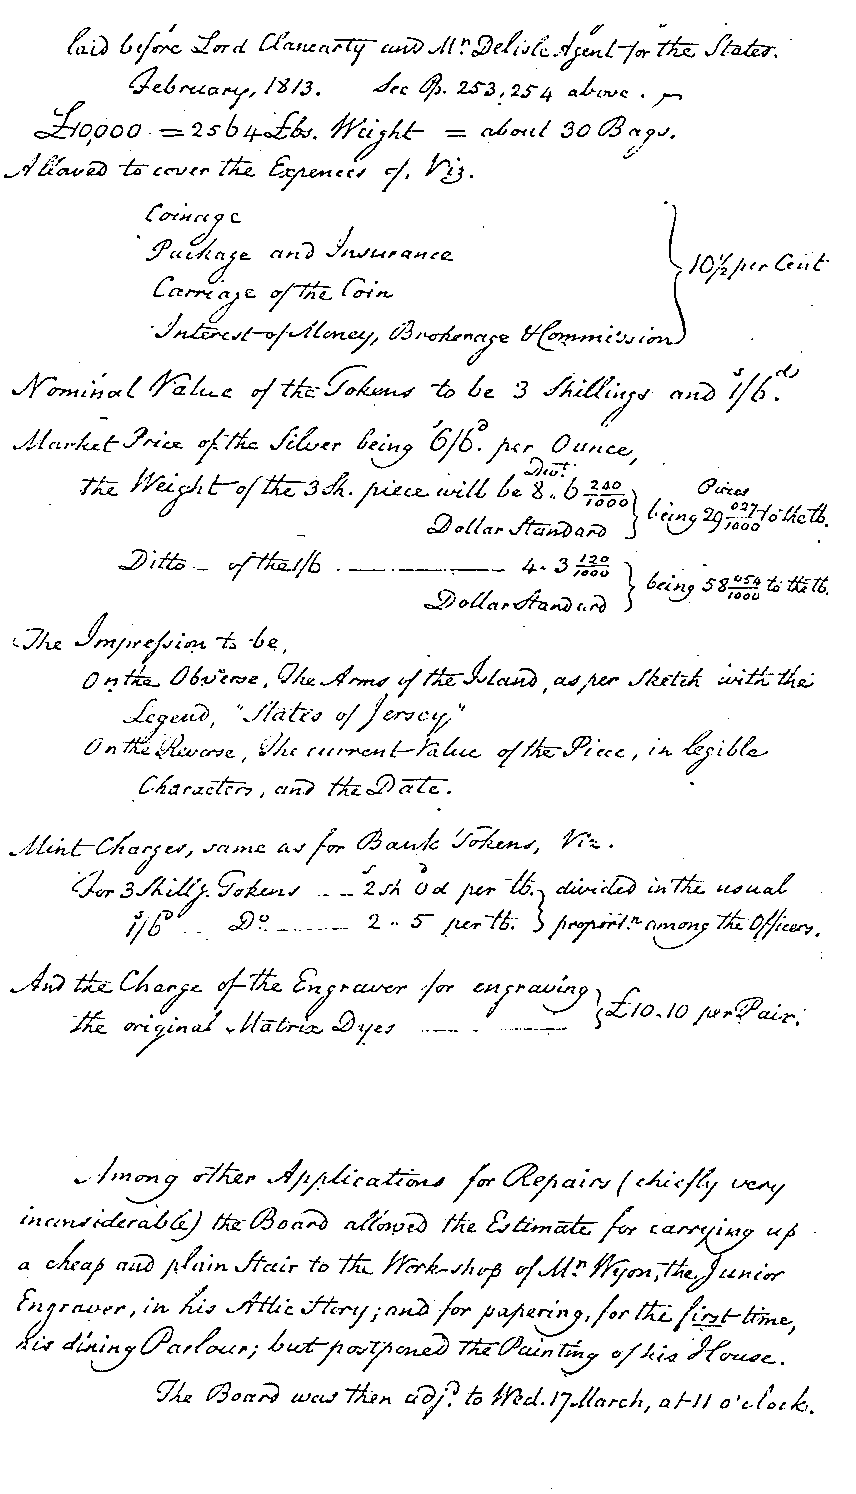 laid before Lord Clancarty and Mr. Delisle Agent for the States.
February, 1813. See Pp. 253, 254 above.
£10,000 = 2564 £bs. Weight = about 30 Bags.
Allowed to cover the Expences of, Viz.
Coinage
Package and Insurance
Carriage of the Coin
Interest of Money, Brokerage & Commission } 10½ per Cent
Nominal Value of the Tokens to be 3 Shillings and 1s/6ds.
Market Price of the Silver being 6s/6D. per Ounce,
the Weight of the 3 Sh. piece will be 8 Dwt. .. 6 240/1000
Dollar Standard } being 29 027/1000 Pieces to the lb.
Ditto – of the 1/6 ———— 4 - 3 120/1000
Dollar Standard } being 58 054/1000 to the lb.
The Impression to be,
On the Obverse, The Arms of the Island, as per Sketch with the
Legend, "States of Jersey"
On the Reverse, The current Value of the Piece, in legible
Characters, and the Date.
Mint Charges, same as for Bank Tokens, Viz.
For 3 Shillg. Tokens -- 2 sh 0 d per lb. } divided in the usual
1s/6D .. Do. ------ 2 .. 5 per lb. } proport.n among the Officers.
And the Charge of the Engraver for engraving
the original Matrix Dyes —— } £10.10 per Pair.
Among other Applications for Repairs (chiefly very
inconsiderable) the Board allowed the Estimate for carrying up
a cheap and plain Stair to the Work-shop of Mr. Wyon, the Junior
Engraver, in his Attic Story; and for papering, for the first time,
his dining Parlour; but postponed the Painting of his House.
The Board was then adjd. to Wed. 17 March, at 11 o'clock.